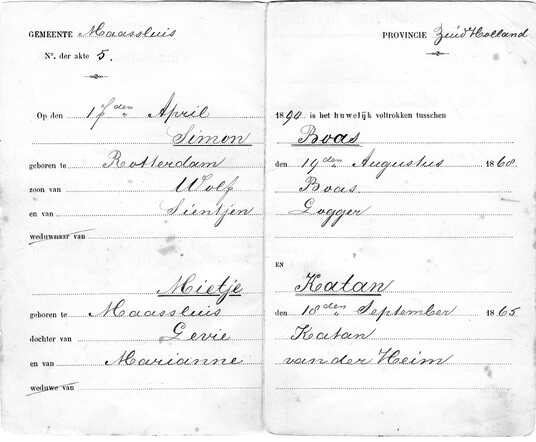 GEMEENTE Maassluis PROVINCIE Zuid Holland
No. der akte 5.
Op den 17den April 1890 is het huwelijk voltrokken tusschen
Simon Boas
geboren te Rotterdam den 19den Augustus 1860.
zoon van Wolf Boas
en van Sientjen Gogger
weduwnaar van
EN
Mietje Katan
geboren te Maassluis den 18den September 1865
dochter van Levie Katan
en van Marianne van der Heim
weduwe van